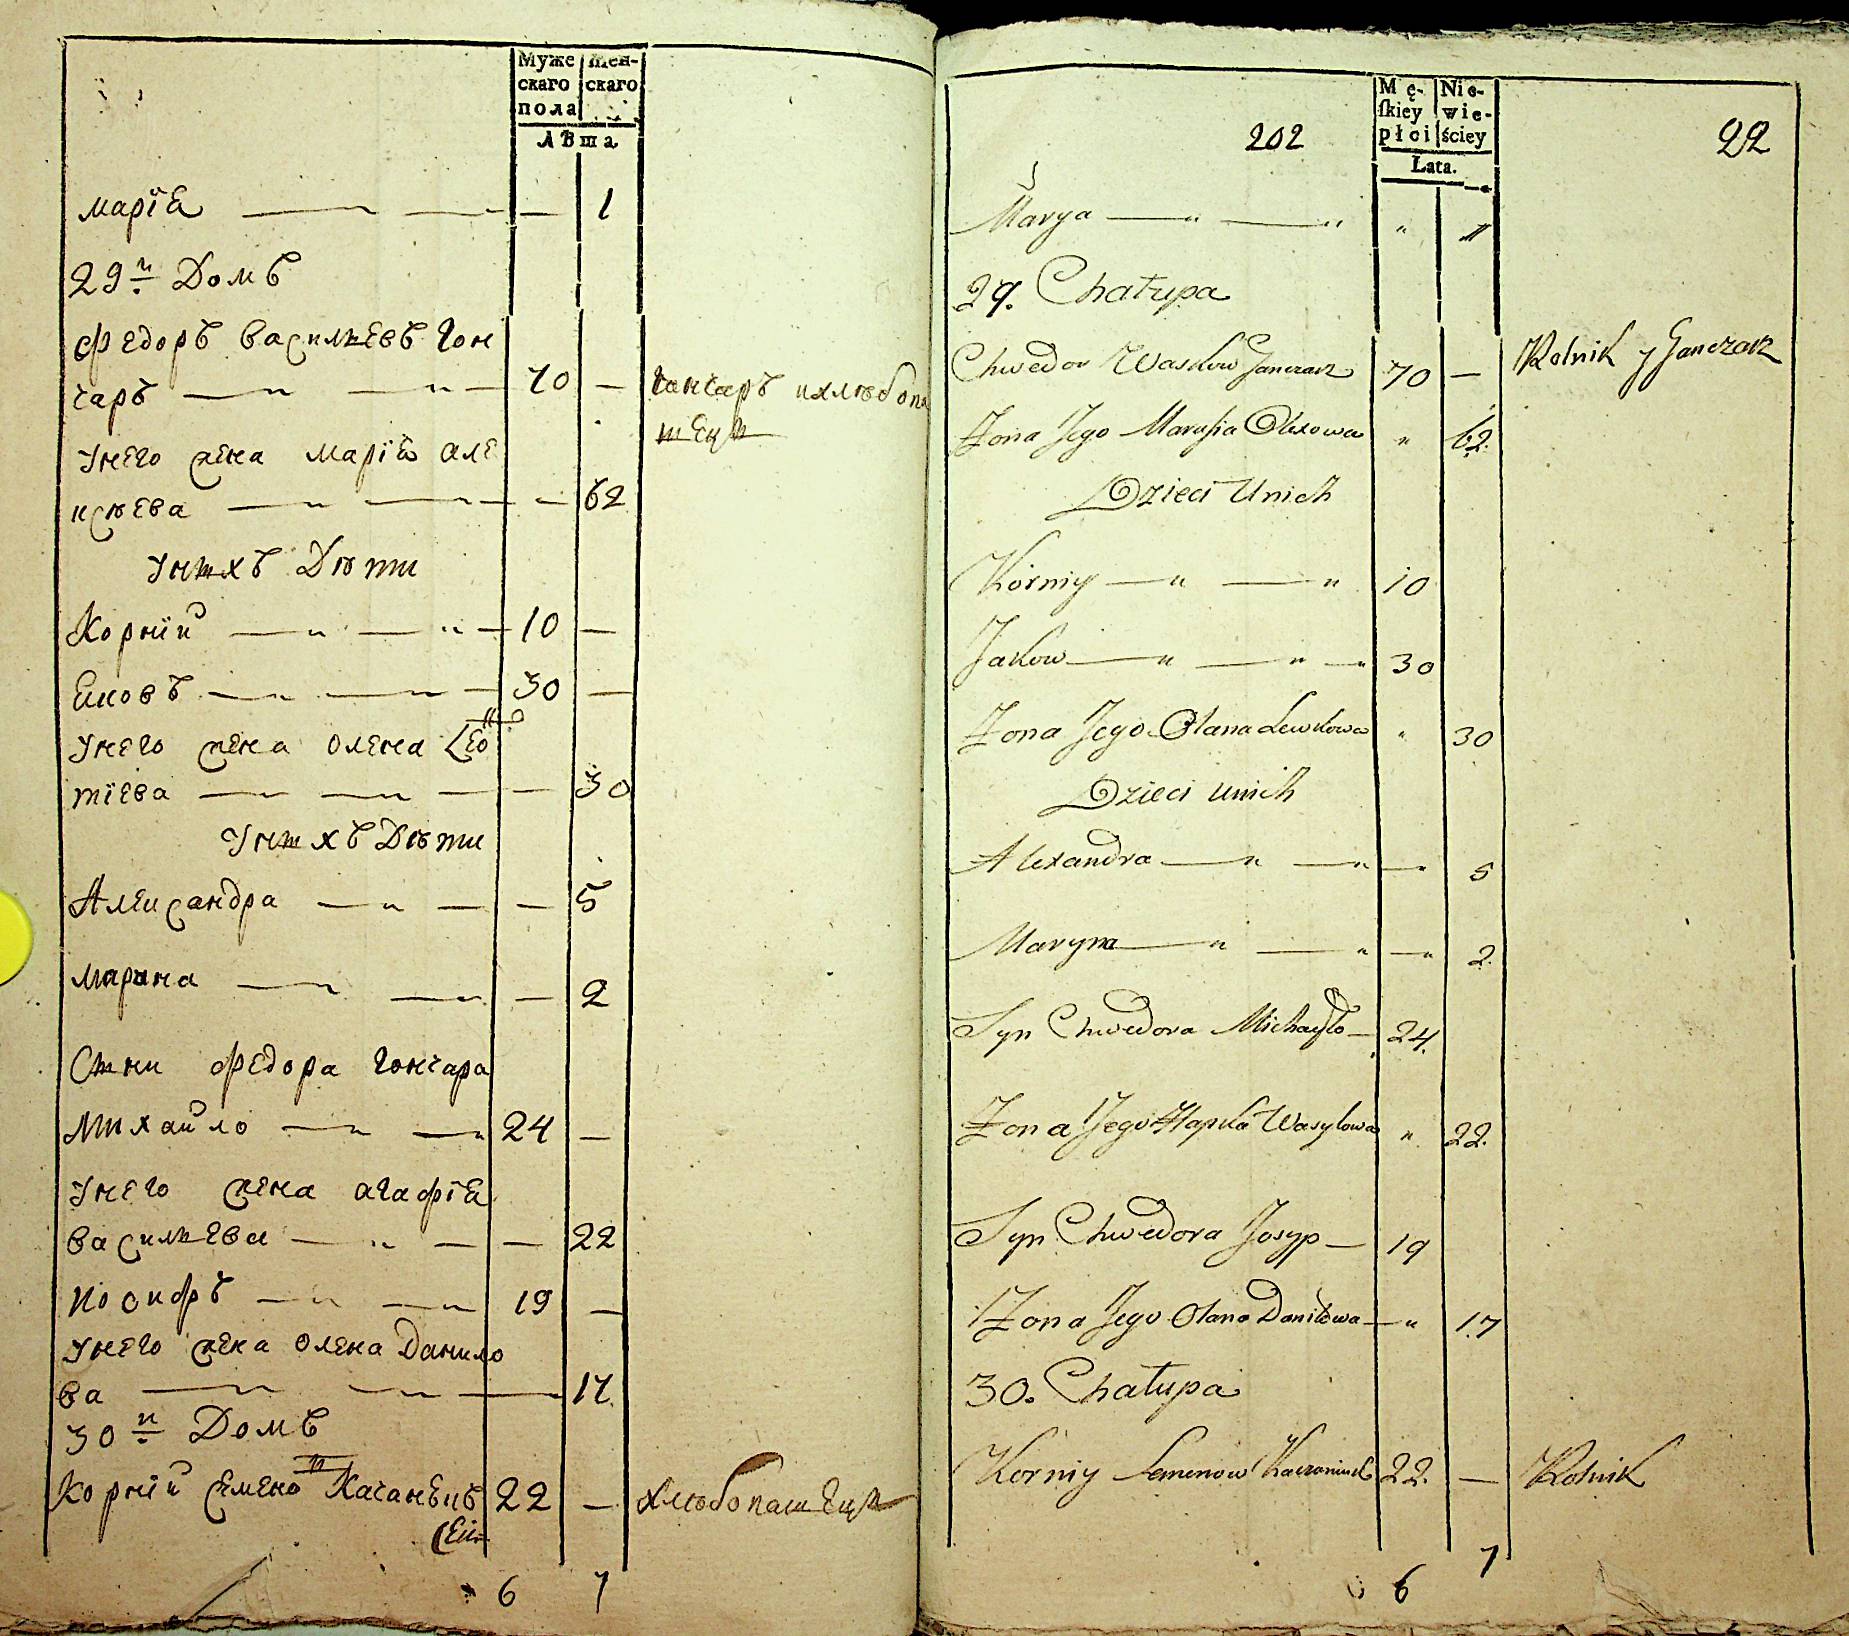 Муже
скаго
пола
Жен-
скаго
Лѣта.
марїѧ 1
29й Домъ
Федоръ васильевъ Гон
чаръ 70 — Гончаръ ихлѣбопа
шецъ
Унего жена марїѧ але
ксѣева 62
Унихъ Дѣти
Корнїй 10 —
Яковъ 30 —
Унего жена олена
тїева 30
Унихъ Дѣти
Александра 5
Марина 2
Сыни Федора Гончара
Михайло 24 —
Унего жена агафїѧ
васильева 22
Иосифъ 19 —
Унего жена олена Данило
ва 17
30й Домъ
Корнїй семено Качанецъ 22 — хлѣбопашецъ
6 7
202
Mę-
skiey
płci
Nie-
wie-
ściey
Lata.
22
Marya " 1
29. Chałupa
Chwedor Waskow Ganczarz 70 — Rolnik y Ganczarz
Żona Jego Marusia Olexowa " 62.
Dzieci Unich
Korniy 10
Jakow 30
Żona Jego Olana Lewkowa " 30
Dzieci unich
Alexandra 5
Maryna 2.
Syn Chwedora Michayło 24.
Żona Jego Hapka Wasylowa " 22.
Syn Chwedora Josyp 19
Żona Jego Olana Daniłowa " 17
30. Chałupa
Korniy Semenow 22. — Rolnik
6 7